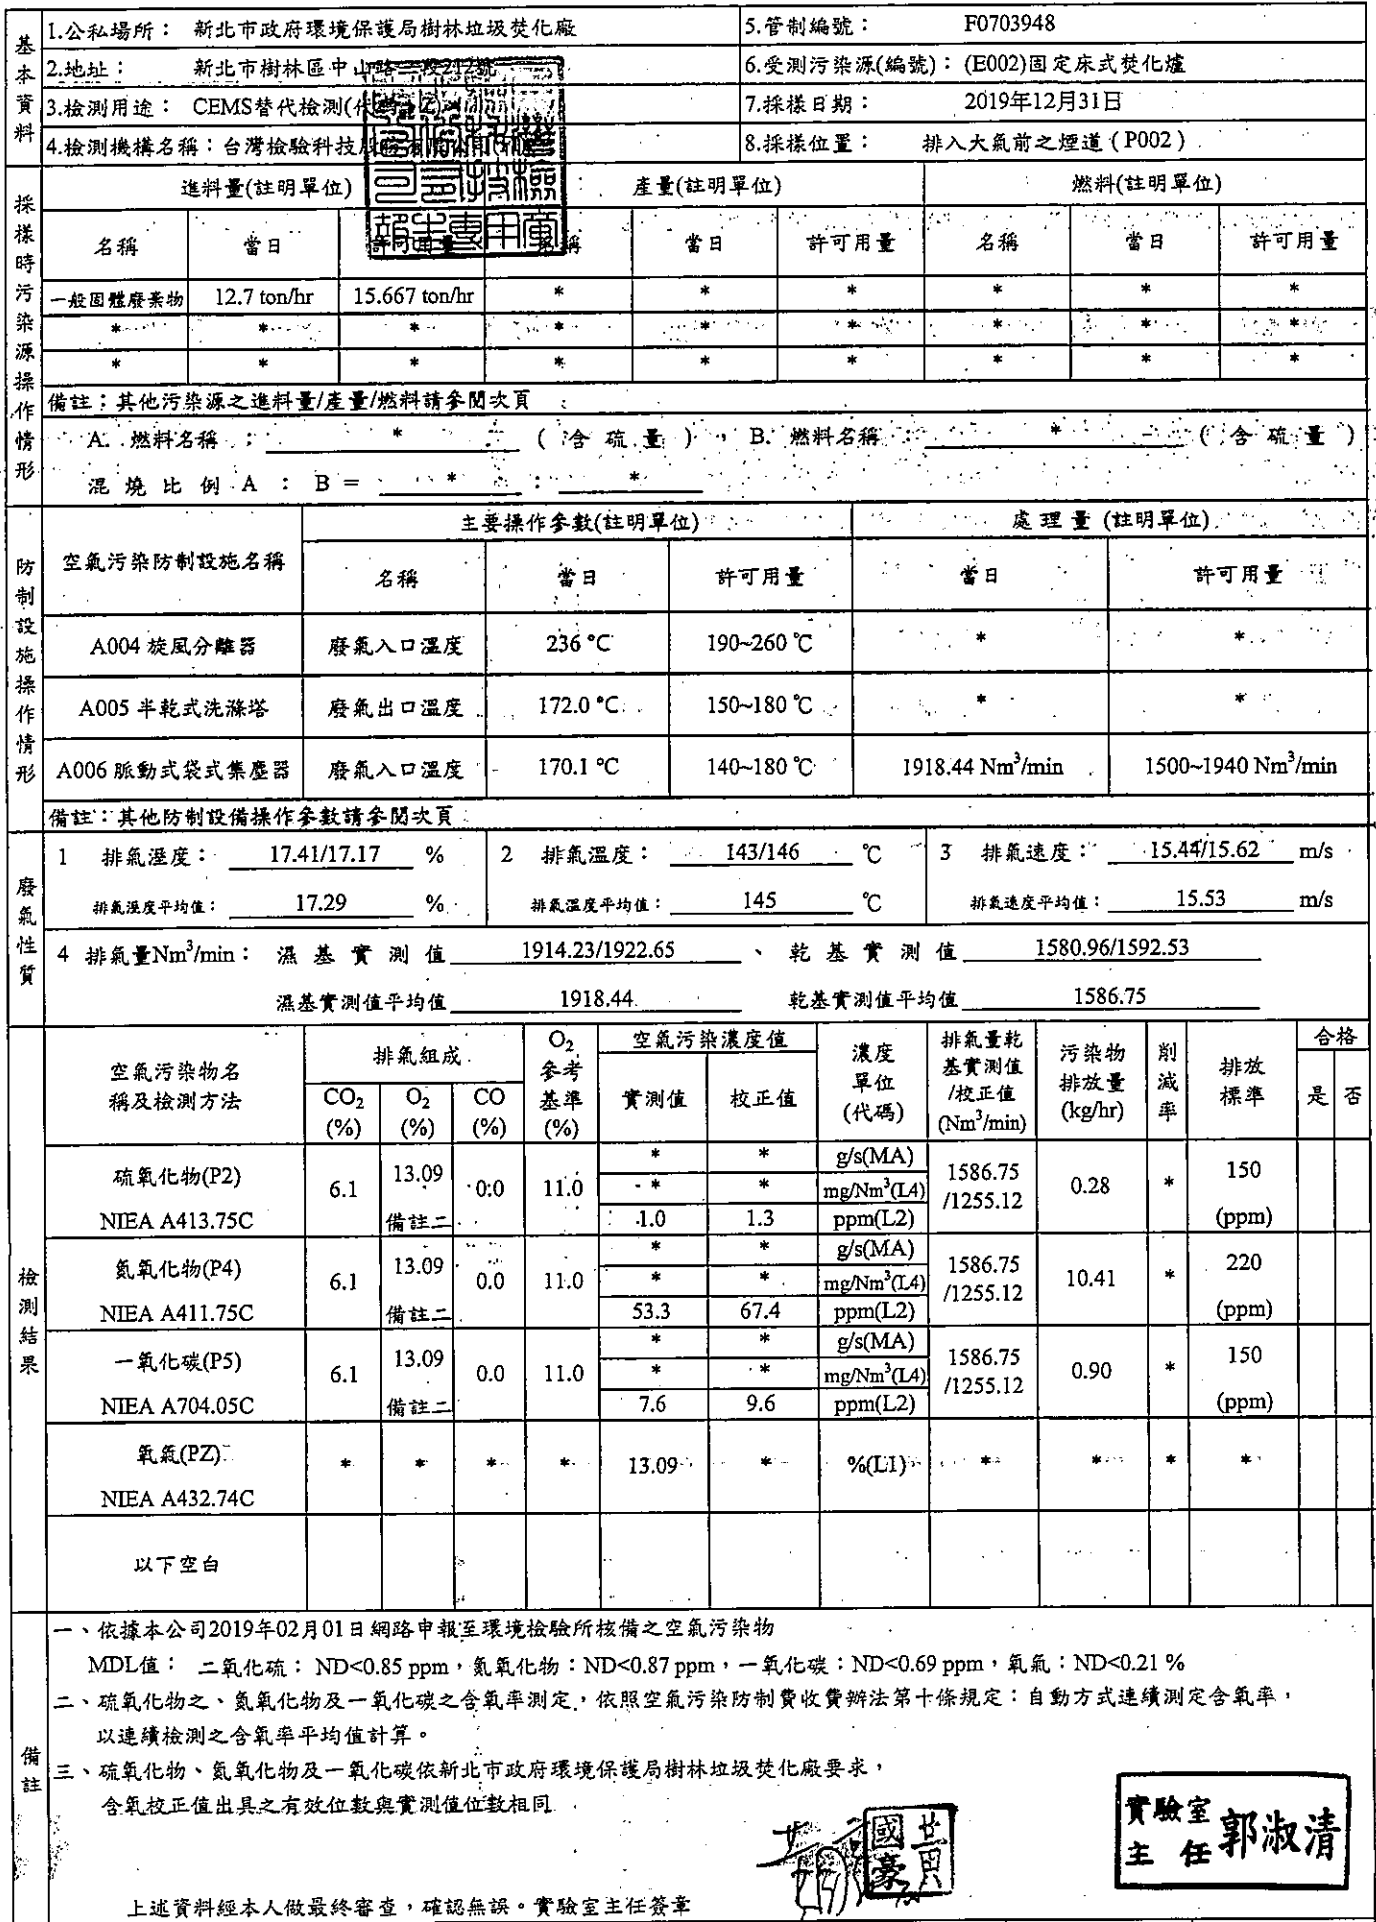 基本資料
1.公私場所： 新北市政府環境保護局樹林垃圾焚化廠 5.管制編號： F0703948
2.地址： 新北市樹林區中山路 6.受測污染源(編號)： (E002)固定床式焚化爐
3.檢測用途： CEMS替代檢測 7.採樣日期： 2019年12月31日
4.檢測機構名稱：台灣檢驗科技 8.採樣位置： 排入大氣前之煙道（P002）
採樣時污染源操作情形
進料量(註明單位) 產量(註明單位) 燃料(註明單位)
名稱 當日 許可用量 名稱 當日 許可用量 名稱 當日 許可用量
一般固體廢棄物 12.7 ton/hr 15.667 ton/hr * * * * * *
* * * * * * * * *
* * * * * * * * *
備註：其他污染源之進料量/產量/燃料請參閱次頁
A. 燃料名稱： * (含硫量)，B. 燃料名稱： * (含硫量)
混燒比例 A ： B = * ： *
防制設施操作情形
空氣污染防制設施名稱 主要操作參數(註明單位) 處理量 (註明單位)
名稱 當日 許可用量 當日 許可用量
A004 旋風分離器 廢氣入口溫度 236 °C 190~260 ℃ * *
A005 半乾式洗滌塔 廢氣出口溫度 172.0 °C 150~180 ℃ * *
A006 脈動式袋式集塵器 廢氣入口溫度 170.1 °C 140~180 ℃ 1918.44 Nm³/min 1500~1940 Nm³/min
備註：其他防制設備操作參數請參閱次頁
廢氣性質
1 排氣溼度： 17.41/17.17 % 2 排氣溫度： 143/146 ℃ 3 排氣速度： 15.44/15.62 m/s
排氣溼度平均值： 17.29 % 排氣溫度平均值： 145 ℃ 排氣速度平均值： 15.53 m/s
4 排氣量Nm³/min： 濕基實測值 1914.23/1922.65 、乾基實測值 1580.96/1592.53
濕基實測值平均值 1918.44 乾基實測值平均值 1586.75
檢測結果
空氣污染物名稱及檢測方法 排氣組成 O₂參考基準(%) 空氣污染濃度值 濃度單位(代碼) 排氣量乾基實測值/校正值(Nm³/min) 污染物排放量(kg/hr) 削減率 排放標準 合格
CO₂(%) O₂(%) CO(%) 實測值 校正值 是 否
硫氧化物(P2) NIEA A413.75C 6.1 13.09 備註二 0.0 11.0 * * g/s(MA) 1586.75/1255.12 0.28 * 150 (ppm)
* * mg/Nm³(L4)
1.0 1.3 ppm(L2)
氮氧化物(P4) NIEA A411.75C 6.1 13.09 備註二 0.0 11.0 * * g/s(MA) 1586.75/1255.12 10.41 * 220 (ppm)
* * mg/Nm³(L4)
53.3 67.4 ppm(L2)
一氧化碳(P5) NIEA A704.05C 6.1 13.09 備註二 0.0 11.0 * * g/s(MA) 1586.75/1255.12 0.90 * 150 (ppm)
* * mg/Nm³(L4)
7.6 9.6 ppm(L2)
氧氣(PZ) NIEA A432.74C * * * * 13.09 * %(L1) * * * *
以下空白
備註
一、依據本公司2019年02月01日網路申報至環境檢驗所核備之空氣污染物
MDL值： 二氧化硫： ND<0.85 ppm，氮氧化物：ND<0.87 ppm，一氧化碳：ND<0.69 ppm，氧氣：ND<0.21 %
二、硫氧化物之、氮氧化物及一氧化碳之含氧率測定，依照空氣污染防制費收費辦法第十條規定：自動方式連續測定含氧率，
以連續檢測之含氧率平均值計算。
三、硫氧化物、氮氧化物及一氧化碳依新北市政府環境保護局樹林垃圾焚化廠要求，
含氧校正值出具之有效位數與實測值位數相同
黃國豪
實驗室主任 郭淑清
上述資料經本人做最終審查，確認無誤。實驗室主任簽章